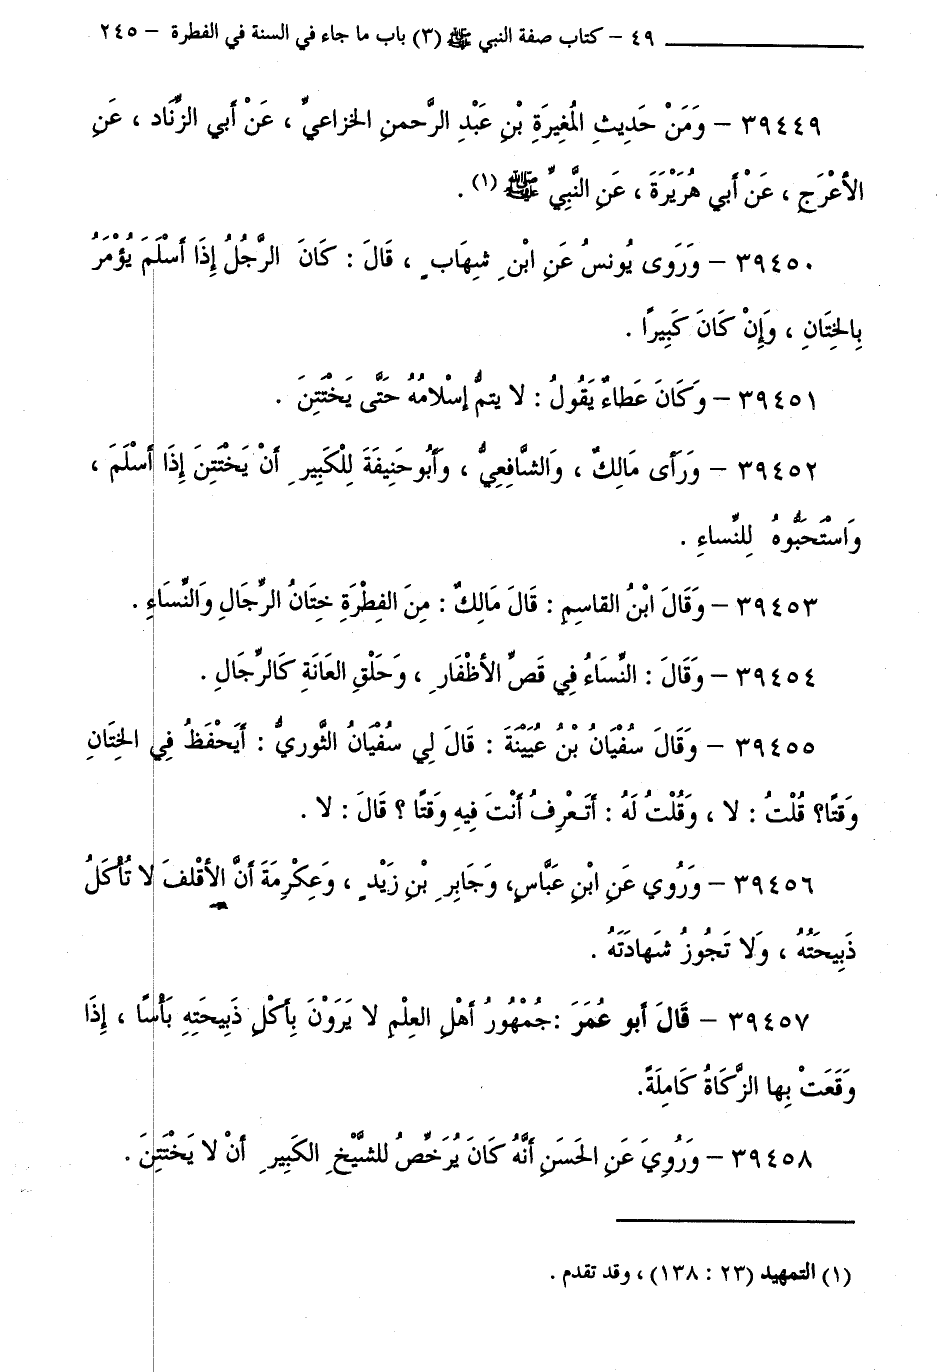 ٤٩ - كتاب صفة النبي ﷺ (٣) باب ما جاء في السنة في الفطرة - ٢٤٥
٣٩٤٤٩ - وَمَنْ حَدِيثِ الْمُغِيرَةِ بْنِ عَبْدِ الرَّحمنِ الخزاعيِّ ، عَنْ أبي الزِّنَاد ، عَنِ
الأعْرَجِ ، عَنْ أبي هُرَيْرَةَ ، عَنِ النَّبِيِّ ﷺ (١) .
٣٩٤٥٠ - وَرَوى يُونسُ عَنِ ابْنِ شِهَابٍ ، قَالَ : كَانَ الرَّجُلُ إِذَا أسْلَمَ يُؤْمَرُ
بِالخِتَانِ ، وَإِنْ كَانَ كَبِيرًا .
٣٩٤٥١ - وَكَانَ عَطَاءٌ يَقُولُ : لا يتمُّ إسْلامُهُ حَتَّى يَخْتَتِنَ .
٣٩٤٥٢ - وَرَأى مَالِكٌ ، وَالشَّافِعِيُّ ، وَأَبُو حَنِيفَةَ لِلْكَبِيرِ أنْ يَخْتَتِنَ إِذَا أسْلَمَ ،
وَاسْتَحَبُّوهُ لِلنِّساءِ .
٣٩٤٥٣ - وَقَالَ ابْنُ القاسِمِ : قَالَ مَالِكٌ : مِنَ الفِطْرَةِ خِتَانُ الرِّجَالِ وَالنِّسَاءِ .
٣٩٤٥٤ - وَقَالَ : النِّسَاءُ فِي قَصِّ الأظْفَارِ ، وَحَلْقِ العَانَةِ كَالرِّجَالِ .
٣٩٤٥٥ - وَقَالَ سُفْيَانُ بْنُ عُيَيْنَةَ : قَالَ لِي سُفْيَانُ الثَّوريُّ : أيَحْفَظُ فِي الخِتَانِ
وَقتًا؟ قُلْتُ : لا ، وَقُلْتُ لَهُ : أتَعْرِفُ أنْتَ فِيهِ وَقتًا ؟ قَالَ : لا .
٣٩٤٥٦ - وَرُوي عَنِ ابْنِ عَبَّاسٍ، وَجَابِرِ بْنِ زَيْدٍ ، وَعِكْرِمَةَ أنَّ الأقْلفَ لا تُأْكَلُ
ذَبِيحَتُهُ ، وَلا تَجُوزُ شَهادَتَهُ .
٣٩٤٥٧ - قَالَ أبو عُمَرَ :جُمْهُورُ أهْلِ العِلْمِ لا يَرَوْنَ بِأكْلِ ذَبِيحَتِهِ بَأْسًا ، إِذَا
وَقَعَتْ بِها الزَّكَاةُ كَامِلَةً.
٣٩٤٥٨ - وَرُوِيَ عَنِ الحَسَنِ أنَّهُ كَانَ يُرَخِّصُ للشَّيْخِ الكَبِيرِ أنْ لا يَخْتَتِنَ .
(١) التمهيد (٢٣ : ١٣٨) ، وقد تقدم .